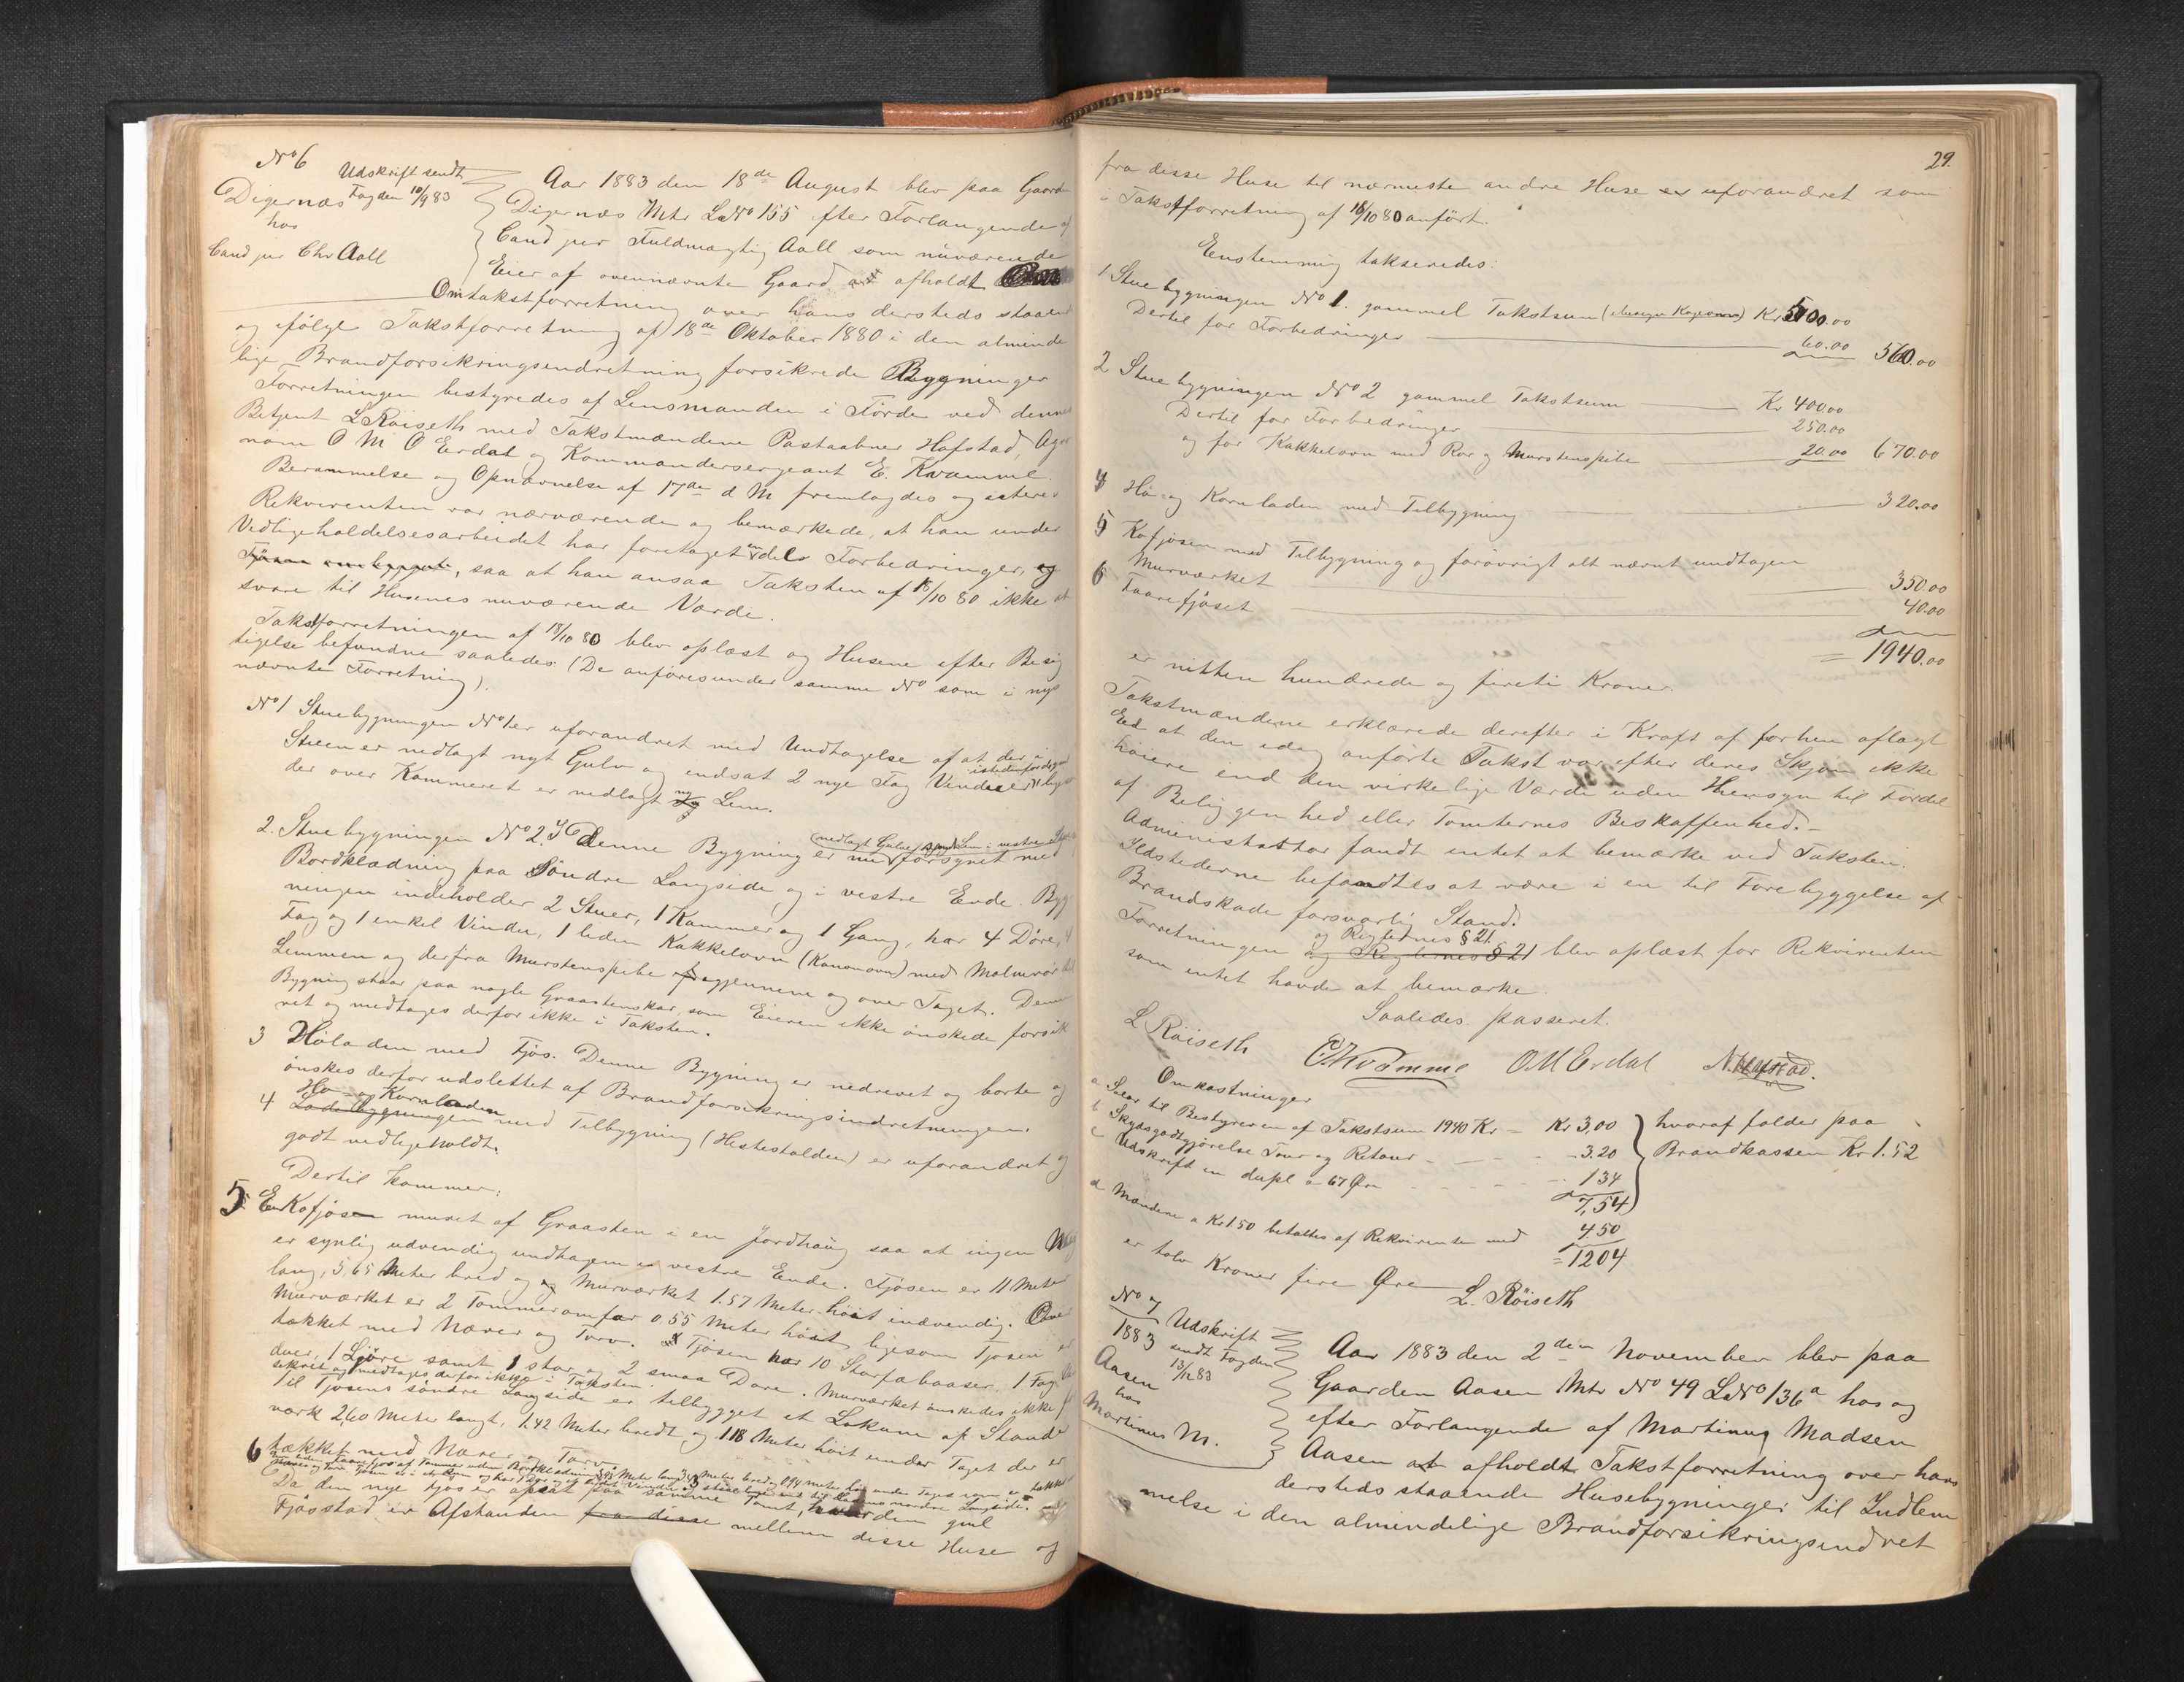 No 6
Udskrift sendt
Fogden 10/9 83
Digernæs
hos
Cand jur Chr Aall
Aar 1883 den 18de August blev paa Gaarden
Digernæs Mtr LNo 155 efter Forlangende af
Cand jur Fuldmægtig Aall som nuværende
Eier af ovennævnte Gaard afholdt
Omtakstforretning over hans dersteds staaende
og ifølge Takstforretning af 18de Oktober 1880 i den alminde
lige Brandforsikringsindretning forsikrede Bygninger
Forretningen bestyredes af Lensmanden i Förde ved dennes
Betjent L Röiseth med Takstmændene Postaabner Hafstad, Age
nom O M O Erdal og Kommandersergeant E. Kvamme.
Berammelse og Opnævnelse af 17de d M fremlagdes og
Rekvirenten var nærværende og bemærkede, at han under
Vedligeholdelsesarbeidet har foretaget en del Forbedringer, og
, saa at han ansaa Taksten af 18/10 80 ikke at
svare til Husenes nuværende Værdi.
Takstforretningen af 18/10 80 blev oplæst og Husene efter Besig
tigelse befundne saaledes: (De anføres under samme No som i nys
nævnte Forretning).
No 1 Stuebygningen No 1 er uforandret med Undtagelse af at der i
Stuen er nedlagt nyt Gulv og indsat 2 nye Fag Vinduer
der over Kammeret er nedlagt ny Lem.
2. Stuebygningen No 2. I Denne Bygning er nedlagt Gulv
nu forsynet med
Bordklædning paa Söndre Langside og i vestre Ende. Byg
ningen indeholder 2 Stuer, 1 Kammer og 1 Gang, har 4 Döre, 4
Fag og 1 enkel Vindu, 1 liden Kakkelovn (Kanonovn) med Malmrör til
Lemmen og derfra Murstenspibe gjennem og over Taget. Denne
Bygning staar paa nogle Graastenskar, som Eieren ikke önskede forsik
ret og medtages derfor ikke i Taksten.
3 Höladen med Fjös. Denne Bygning er nedrevet og borte og
önskes derfor udslettet af Brandforsikringsindretningen.
Hö- og Kornladen
4 Ladebygningen med Tilbygning (Hestestalden) er uforandret og
godt vedligeholdt.
Dertil kommer:
5 En Kofjøs muret af Graasten i en Jordhaug saa at ingen
er synlig udvendig undtagen i vestre Ende. Fjösen er 11 Meter
lang, 5,65 Meter bred og Murværket 1.57 Meter höit indvendig. Over
Murværket er 2 Tommeromfar 0.55 Meter höit ligesom Fjösen er
tækket med Næver og Torv. Fjösen har 10 Storfæbaaser, 1 Fag
duer, 1 samt 1 stor og 2 smaa Döre. Murværket önskedes ikke for
sikret og medtages derfor ikke i Taksten.
Til Fjösens söndre Langside er tilbygget et Lokum af Stand
værk 2,60 Meter langt, 1.42 Meter bredt og 1.18 Meter höit under Taget der er
tækket med Næver og Torv.
6
Da den nye Fjös er opsat paa samme Tomt, hvor den gml
Fjös stod er Afstanden fra disse mellem disse Huse og
29.
fra disse Huse til nærmeste andre Huse er uforandret som
i Takstforretning af 18/10 80 anfört.
Enstemmig takseredes:
1 Stuebygningen No 1. gammel Takstsum Kr 500.00
Dertil for Forbedringer 60.00 560.00
2 Stuebygningen No 2 gammel Takstsum Kr 400.00
Dertil for Forbedringer 250.00
og for Kakkelovn med Rør og Murstenspibe 20.00 670.00
4 Hö- og Kornladen med Tilbygning 320.00
5 Kofjösen med Tilbygning og forövrigt alt nævnt undtagen
Murværket 350.00
6 Faarefjöset 40.00
= 1940.00
er nitten hundrede og fireti Kroner.
Takstmændene erklærede derefter i Kraft af forhen aflagt
Ed at den idag anförte Takst var efter deres Skjön ikke
höiere end den virkelige Værdi uden Hensyn til Fordel
af Beliggenhed eller Tomternes Beskaffenhed.
Administrator fandt intet at bemærke ved Taksten.
Ildstederne befandtes at være i en til Forebyggelse af
Brandskade forsvarlig Stand.
og Reglernes § 21
Forretningen og Reglernes § 21 blev oplæst for Rekvirenten
som intet havde at bemærke.
Saaledes passeret.
L Röiseth E Kvamme O M Erdal N. Hafstad.
Omkostninger
a Salær til Bestyreren af Takstsum 1940 Kr Kr 3.00
b Skydsgodtgjörelse Tour og Retour 3.20
c Udskrift in dupl a 67 Øre 1.34
7,54
hvoraf falder paa
Brandkassen Kr 1.52
d Mændene a Kr 1.50 betaltes af Rekvirenten med 4.50
= 1204
er tolv Kroner fire Øre
L. Röiseth
No 7
1883
Udskrift
sendt Fogden
13/12 83
Aasen
hos
Martinus M.
Aar 1883 den 2den November blev paa
Gaarden Aasen Mtr No 49 LNo 136a hos og
efter Forlangende af Martinus Madsen
Aasen at afholdt Takstforretning over hans
dersteds staaende Husebygninger til Indlem
melse i den almindelige Brandforsikringsindret